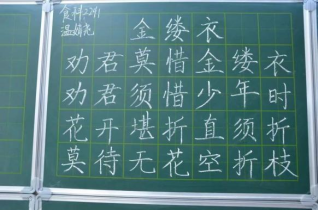 食科2241
金缕衣
劝君莫惜金缕衣
劝君须惜少年时
花开堪折直须折
莫待无花空折枝